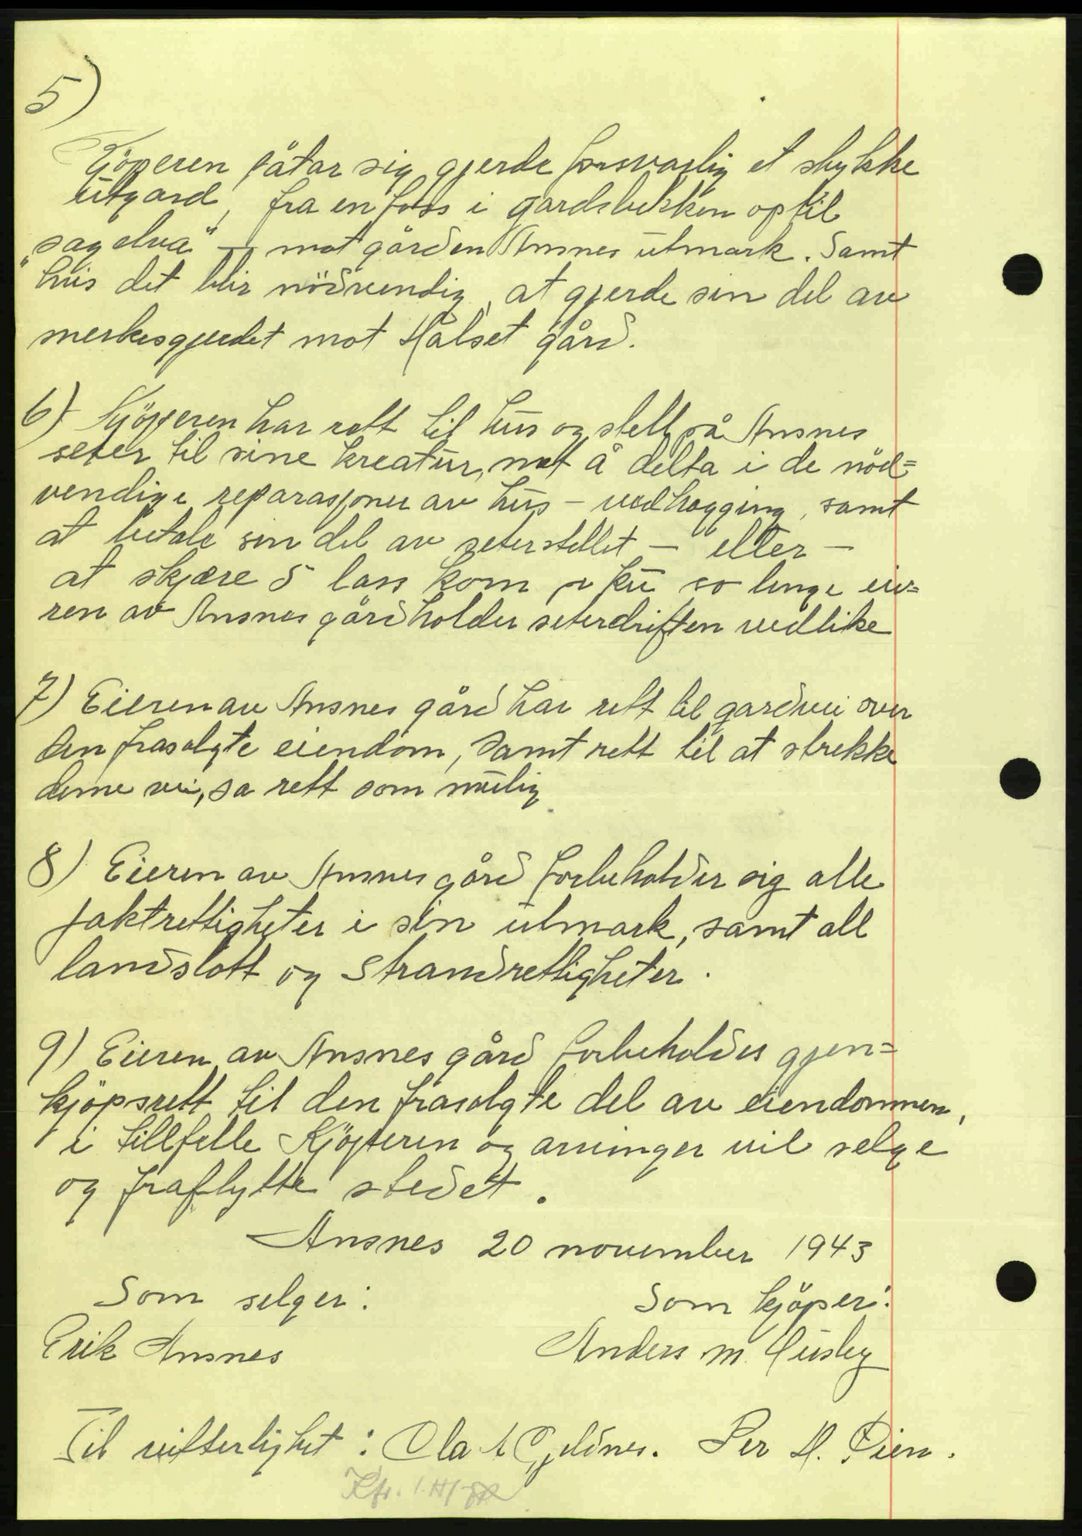 5)
Kjöperen påtar sig gjerde forsvarlig et stykke
utgard, fra en foss i gardsbekken op til
"sagelva" – mot gården Ansnes utmark. Samt
hvis det blir nödvendig, at gjerde sin del av
merkesgjerdet mot Halset gård.
6) Kjöperen har rett til hus og stell på Ansnes
seter til sine kreatur, mot å delta i de nöd=
vendige reparasjoner av hus – vedhogging, samt
at betale sin del av seterstellet – eller –
at skjære 5 lass korn pr ku so lenge eie=
ren av Ansnes gård holder seterdriften vedlike
7) Eieren av Ansnes gård har rett til gardvei over
den frasolgte eiendom, samt rett til at strekke
denne vei, so rett som mulig
8) Eieren av Ansnes gård forbeholder sig alle
jaktrettigheter i sin utmark, samt all
landslott og Strandrettigheter.
9) Eieren av Ansnes gård forbeholdes gjen=
kjöpsrett til den frasolgte del av eiendommen,
i tillfelle Kjöperen og arvinger vil selge
og fraflytte stedet.
Ansnes 20 november 1943
Som selger: Som kjöper:
Erik Ansnes Anders M. Husby
Til vitterlighet: Ola A Gjeldnes. Per H. Öien.
Kfr.